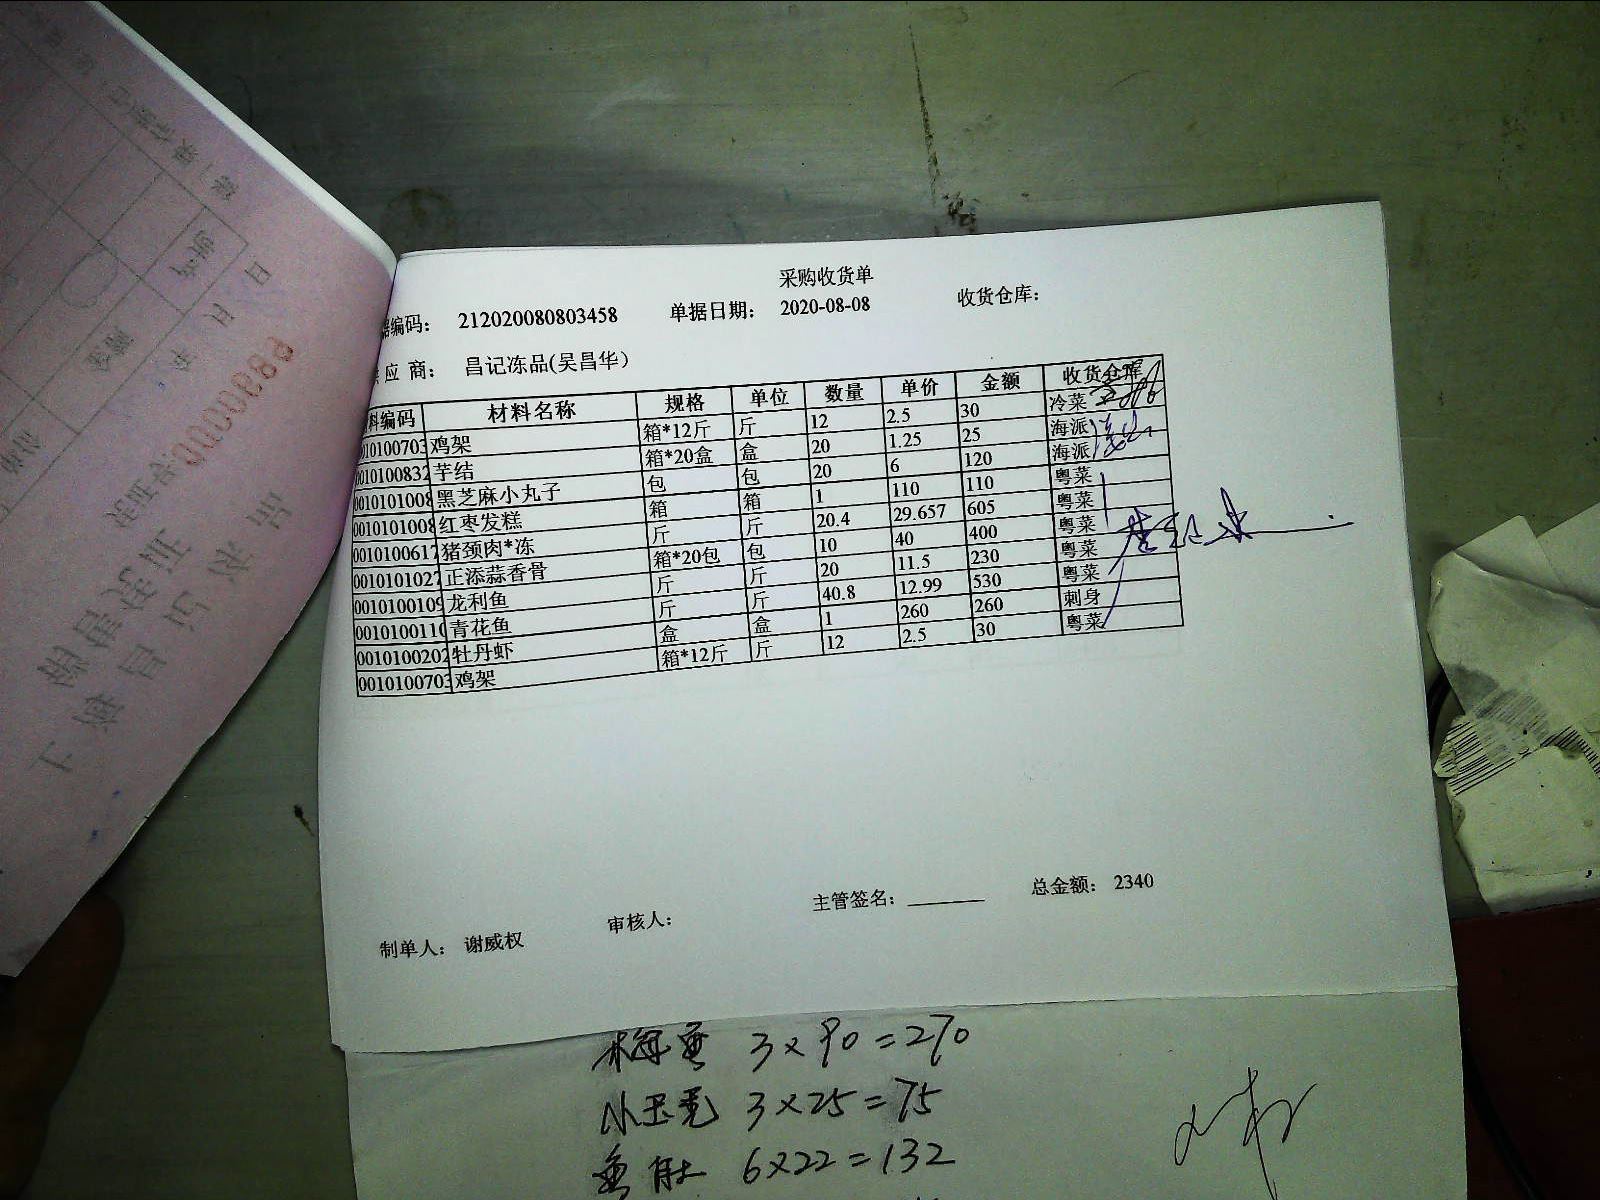 采购收货单
编码： 212020080803458 单据日期： 2020-08-08 收货仓库：
应 商： 昌记冻品(吴昌华)
料编码 材料名称 规格 单位 数量 单价 金额 收货仓库
010100703 鸡架 箱*12斤 斤 12 2.5 30 冷菜
0010100832 芋结 箱*20盒 盒 20 1.25 25 海派
0010101008 黑芝麻小丸子 包 包 20 6 120 海派
0010101008 红枣发糕 箱 箱 1 110 110 粤菜
0010100617 猪颈肉*冻 斤 斤 20.4 29.657 605 粤菜
0010101027 正添蒜香骨 箱*20包 包 10 40 400 粤菜
0010100109 龙利鱼 斤 斤 20 11.5 230 粤菜
0010100110 青花鱼 斤 斤 40.8 12.99 530 粤菜
0010100202 牡丹虾 盒 盒 1 260 260 刺身
0010100703 鸡架 箱*12斤 斤 12 2.5 30 粤菜
制单人： 谢威权 审核人： 主管签名： 总金额： 2340
3×90=270
3×25=75
6×22=132